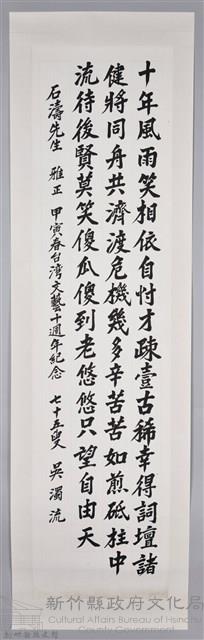 十年風雨笑相依自忖才疎壹古稀幸得詞壇諸
健將同舟共濟渡危機幾多辛苦苦如煎砥柱中
流待後賢莫笑傻瓜傻到老悠悠只望自由天
石濤先生 雅正 甲寅春台湾文藝十週年紀念 七十五叟 吳濁流
新竹縣政府文化局
Cultural Affairs Bureau of Hsinchu
County Government